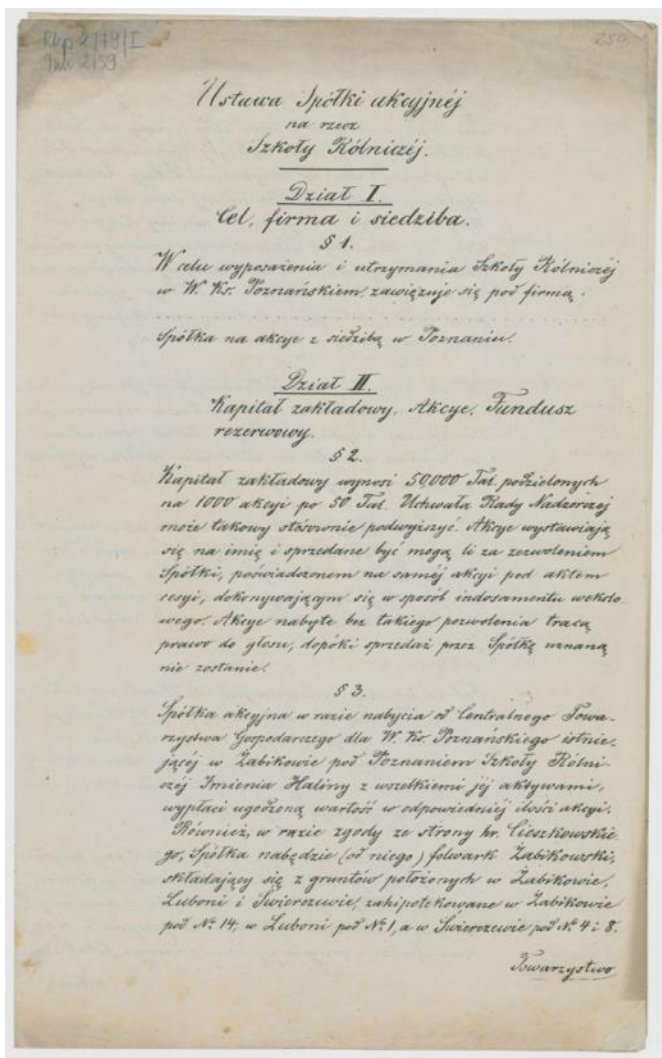 Rkp 2179/I
250
Ustawa Spółki akcyjnéj
na rzecz
Szkoły Rólniczéj.
Dział I.
Cel, firma i siedziba.
§ 1.
W celu wyposażenia i utrzymania Szkoły Rólniczéj
w W. Ks. Poznańskiem, zawięzuje się pod firmą:
Spółka na akcye z siedzibą w Poznaniu.
Dział II.
Kapitał zakładowy. Akcye. Fundusz
rezerwowy.
§ 2.
Kapitał zakładowy wynosi 50,000 Tal. podzielonych
na 1000 akcyi po 50 Tal. Uchwała Rady Nadzorczej
może takowy stósownie podwyższyć. Akcye wystawiają
się na imię i sprzedane być mogą li za zezwoleniem
Spółki, poświadczonem na saméj akcyi pod aktem
cesyi, dokonywającym się w sposób indosamentu wekslo-
wego. Akcye nabyte bez takiego pozwolenia tracą
prawo do głosu, dopóki sprzedaż przez Spółkę uznaną
nie zostanie.
§ 3.
Spółka akcyjna w razie nabycia od Centralnego Towa-
rzystwa Gospodarczego dla W. Ks. Poznańskiego istnie-
jącéj w Żabikowie pod Poznaniem Szkoły Rólni-
czéj Imienia Haliny z wszelkiemi jéj aktywami,
wypłaci ugodzoną wartość w odpowiedniéj ilości akcyi.
Również, w razie zgody ze strony hr. Cieszkowskie-
go, Spółka nabędzie (od niego) folwark Żabikowski,
składający się z gruntów położonych w Żabikowie,
Luboni i Świerczewie, zahipotekowane w Żabikowie
pod № 14, w Luboni pod № 1, a w Świerczewie pod № 4 i 8.
Towarzystwo